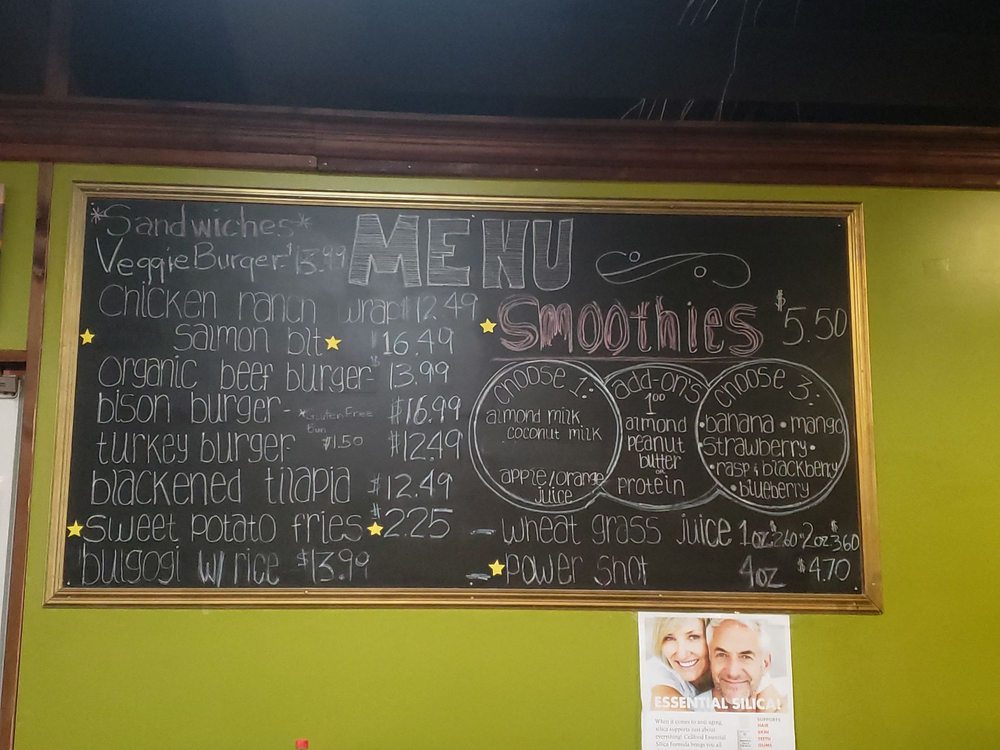 *Sandwiches*
MENU
Veggie Burger- $13.99
chicken ranch wrap $12.49
salmon blt $16.49
organic beef burger- $13.99
bison burger- $16.99
*Gluten Free
Bun $1.50
turkey burger- $12.49
blackened tilapia $12.49
sweet potato fries $2.25
bulgogi w/ rice $13.99
Smoothies $5.50
choose 1:
almond milk
coconut milk
apple/orange
juice
add-on's
1.00
almond
peanut
butter
or
protein
choose 3:
•banana •mango
strawberry•
•rasp & blackberry
•blueberry
- wheat grass juice 1oz $2.60 2oz $3.60
- power shot 4oz $4.70
ESSENTIAL SILICA!
When it comes to anti-aging,
silica supports just about
everything! Cellfood Essential
Silica formula brings you all
SUPPORTS
HAIR
SKIN
TEETH
GUMS